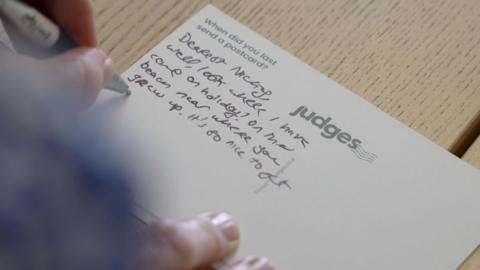 When did you last
send a postcard?
judges
Dearest
Well, look where I have
come on holiday! On the
beacon near where you
grew up. It's so nice to get